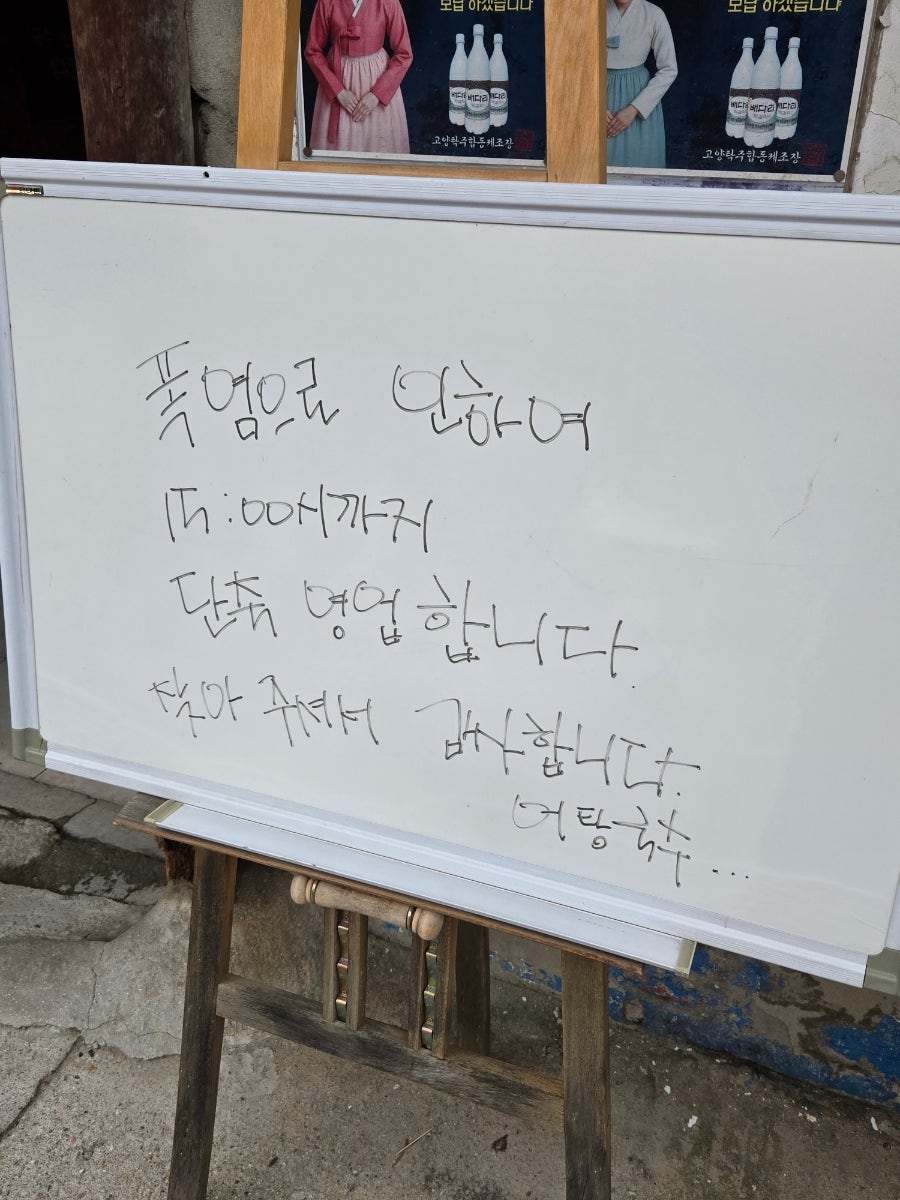 모답 하겠습니다
배다리
배다리
고양탁주합동제조장
모답 하겠습니다
배다리
배다리
배다리
고양탁주합동제조장
폭염으로 인하여
15:00시까지
단축 영업합니다.
찾아 주셔서 감사합니다.
어탕국수...